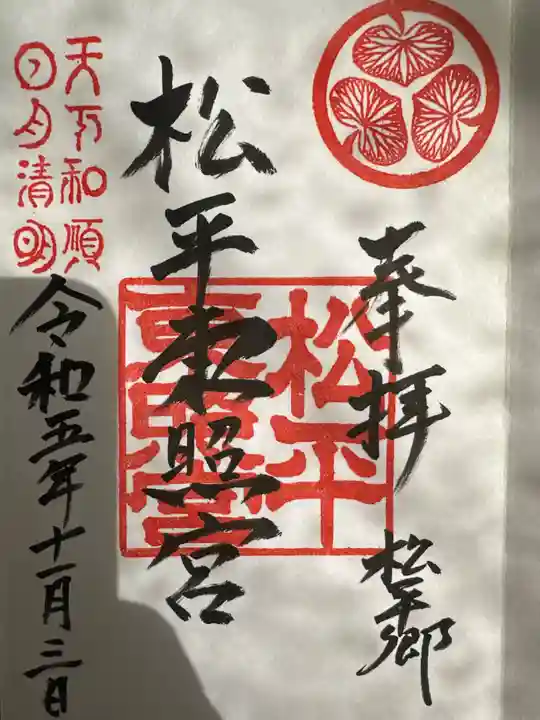 奉拝
松平郷
松平東照宮
松平
東照宮
天下和順
日月清明
令和五年十一月三日